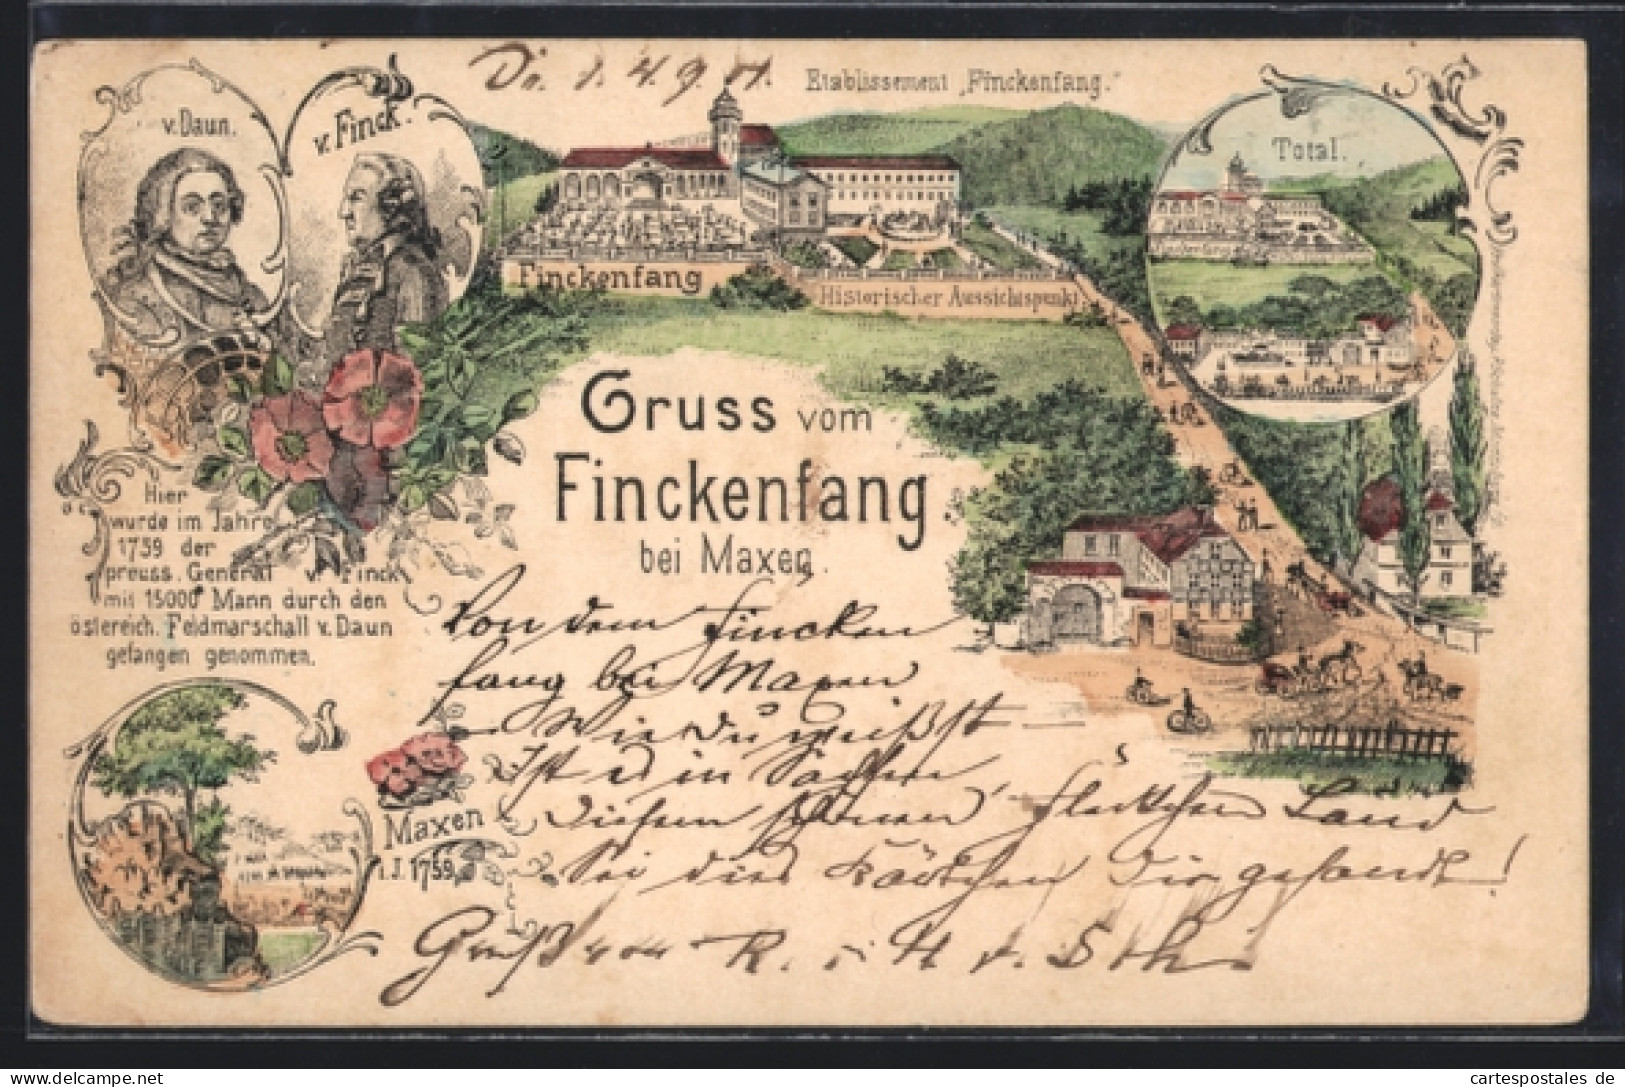 D. 4. 9. 01.
Etablissement „Finckenfang."
v. Daun.
v. Finck.
Total.
Finckenfang
Historischer Aussichtspunkt.
Gruss vom
Finckenfang
bei Maxen.
Hier
wurde im Jahre
1759 der
preuss. General v. Finck
mit 15000 Mann durch den
östereich. Feldmarschall v. Daun
gefangen genommen.
Von dem Fincken
fang bei Maxen
Wie du weißt
Ist es in Sachsen
Diesem schönen Fleckchen Land
Sei dies Kärtchen Dir gesandt!
Maxen
i. J. 1759.
Grüße von R. u. H
cartespostales de